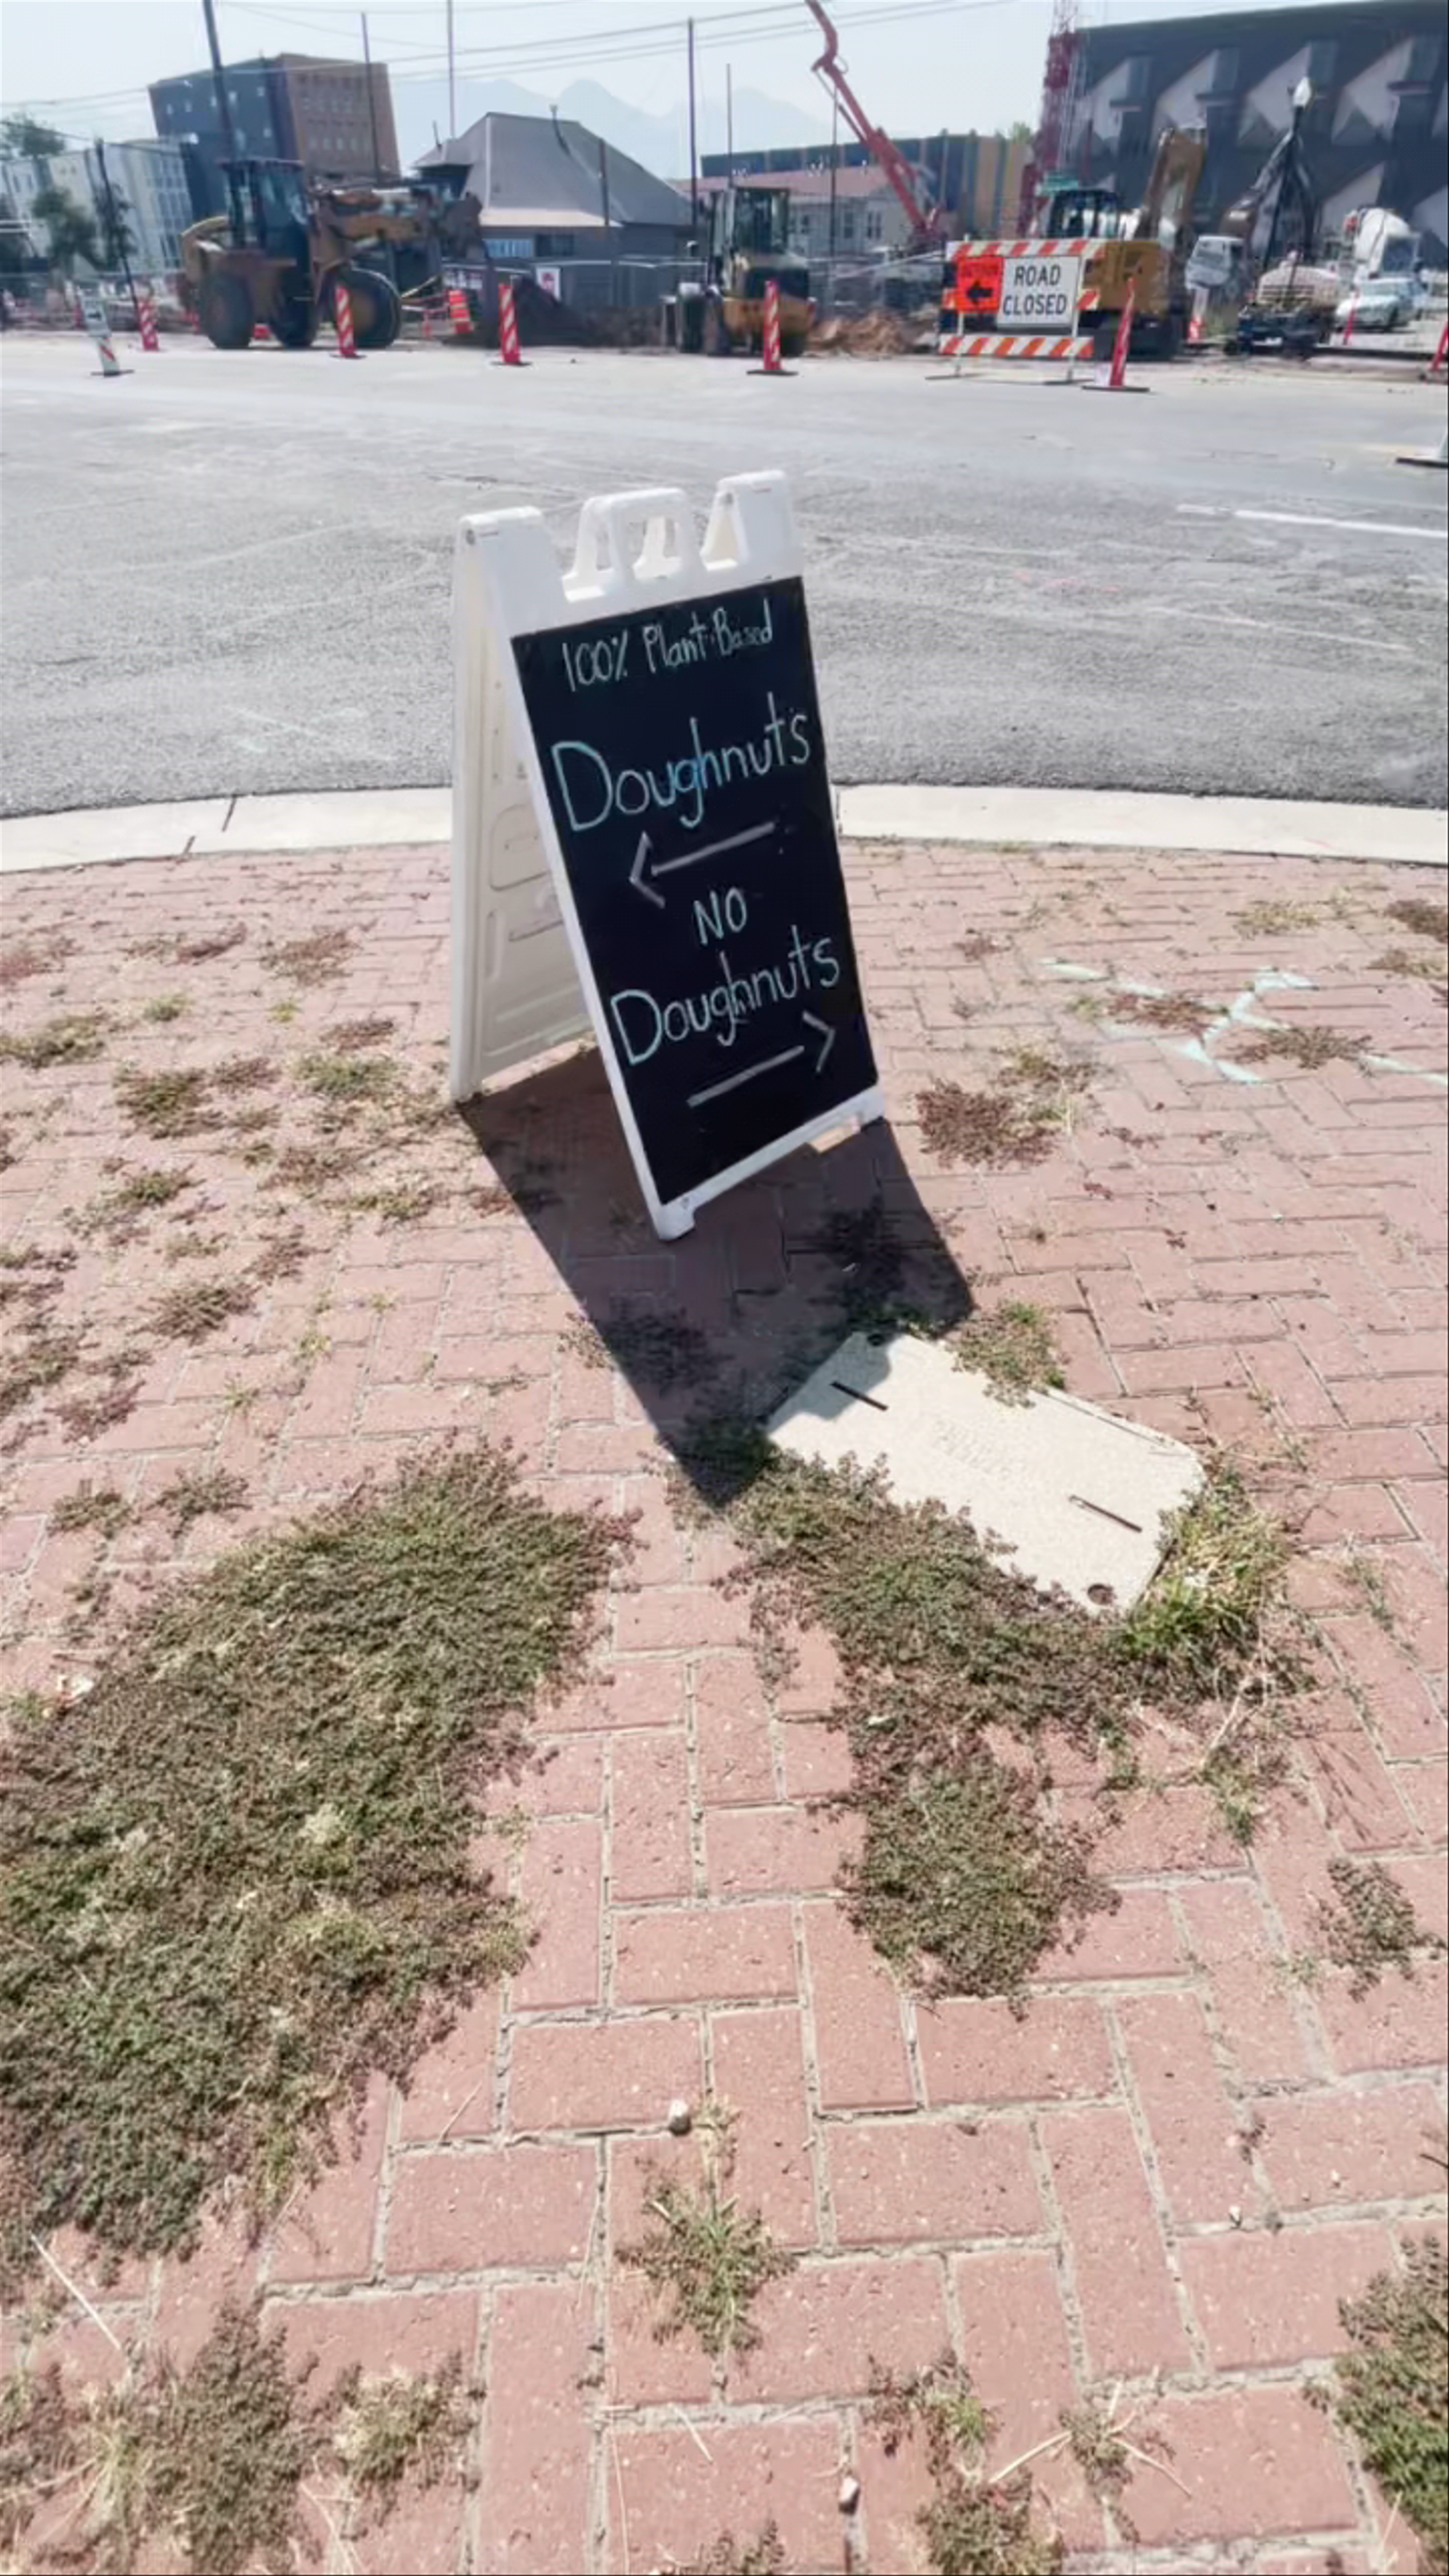 ROAD
CLOSED
100% Plant-Based
Doughnuts
NO
Doughnuts